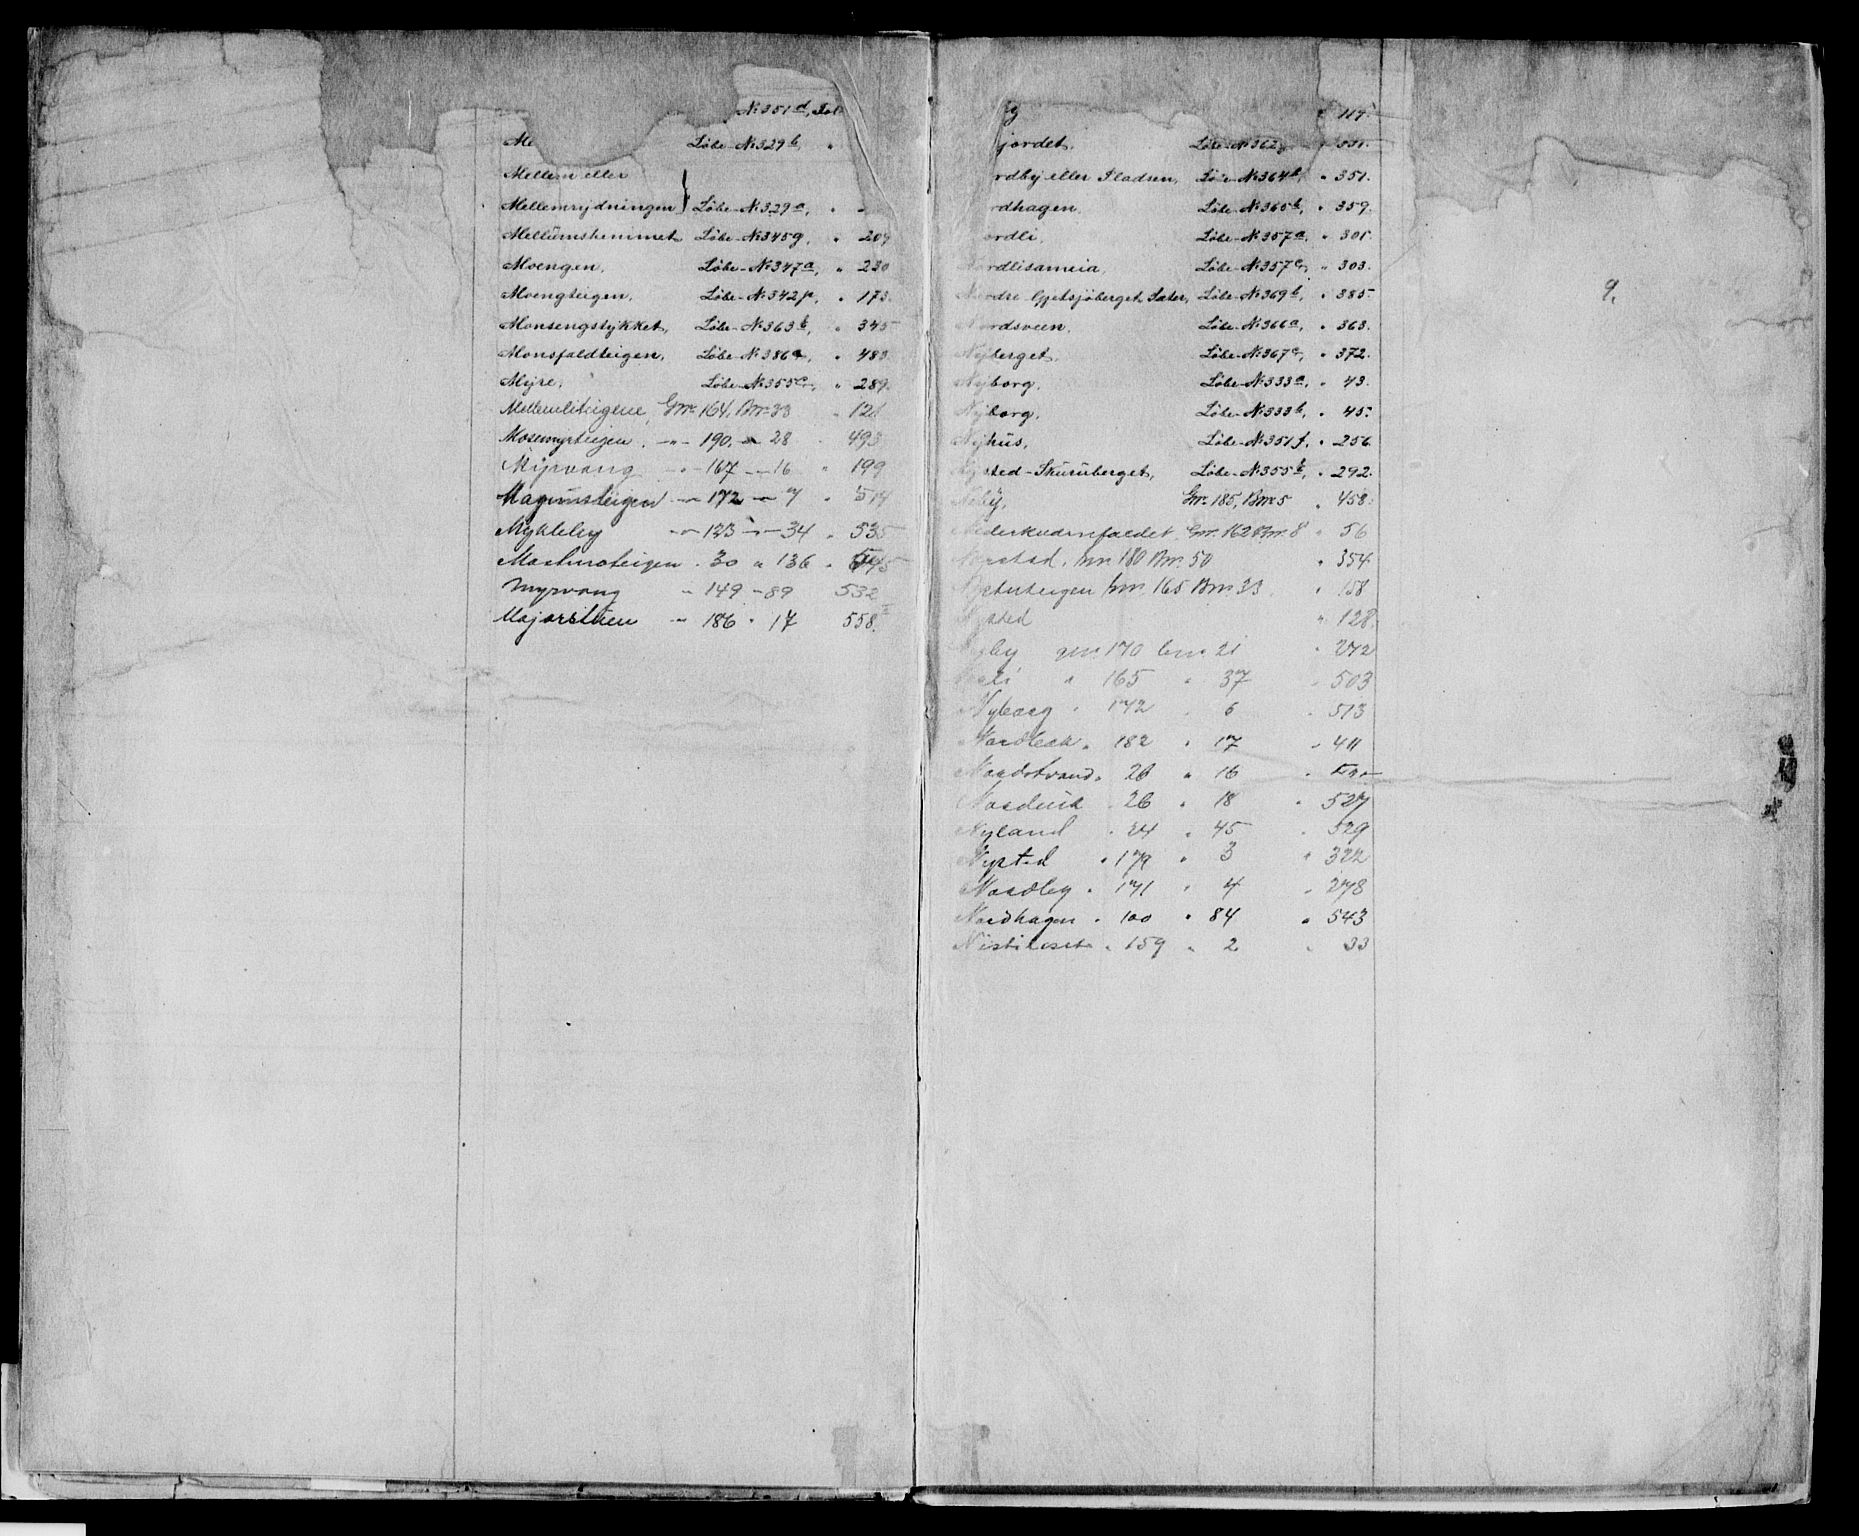 № 351 d, Fol.
Me Løbe-№ 329 b, "
Mellem eller
Mellemrydningen } Løbe-№ 329 a, " "
Mellumshemmet Løbe-№ 345 g, " 209
Moengen, Løbe-№ 347 a, " 230
Moengteigen, Løbe-№ 342 p, " 173.
Monsengstykket, Løbe-№ 363 b, " 345
Monsfaldteigen, Løbe-№ 386 a, " 483
Myre, Løbe-№ 355 c, " 289.
Mellemliteigene, Gnr. 164, Bnr. 33 " 121
Mosemyrteigen, -"- 190, -"- 28 " 493
Myrvang -"- 167 -"- 16 " 199
Magnusteigen -"- 172 -"- 7 " 514
Mykleby -"- 123 -"- 34 " 535
Martinsteigen " 30 " 136 " 545
Myrvang " 149 " 89 532
Majorstuen " 186 " 17 558.
y " 117
jordet, Løbe-№ 362 " 331.
rdby eller Pladsen, Løbe-№ 364 b, " 351.
rdhagen, Løbe-№ 365 b, " 359.
ordli, Løbe-№ 357 a, " 301.
Nordlisameia, Løbe-№ 357 c, " 303.
Nordre Gjetsjøberget Sæter, Løbe-№ 369 b, " 385.
Nordsveen, Løbe-№ 366 a, " 363.
Nyberget, Løbe-№ 367 c, " 372.
Nyborg, Løbe-№ 333 a, " 43.
Nyborg, Løbe-№ 333 b, " 45.
Nyhus, Løbe-№ 351 f, " 256
Nysted-Skuruberget, Løbe-№ 355 b, " 292.
Nøby, Gnr. 185, Bnr. 5 " 458.
Gnr. 162 Bnr. 8 " 56
Nystad, Gnr. 180 Bnr. 50 " 354
Gnr. 165 Bnr. 33 " 158
Nysted " 128.
Nyby gnr. 170 bnr. 21 " 272
" 165 " 37 " 503
Nyborg " 172 " 6 " 513
" 182 " 17 " 411
Nordstrand " 26 " 16 "
" 26 " 18 " 527
Nyland " 24 " 45 " 529
Nysted " 179 " 3 " 322
Nordby " 171 " 4 " 278
Nordhagen " 100 " 84 " 543
" 159 " 2 " 33
9.